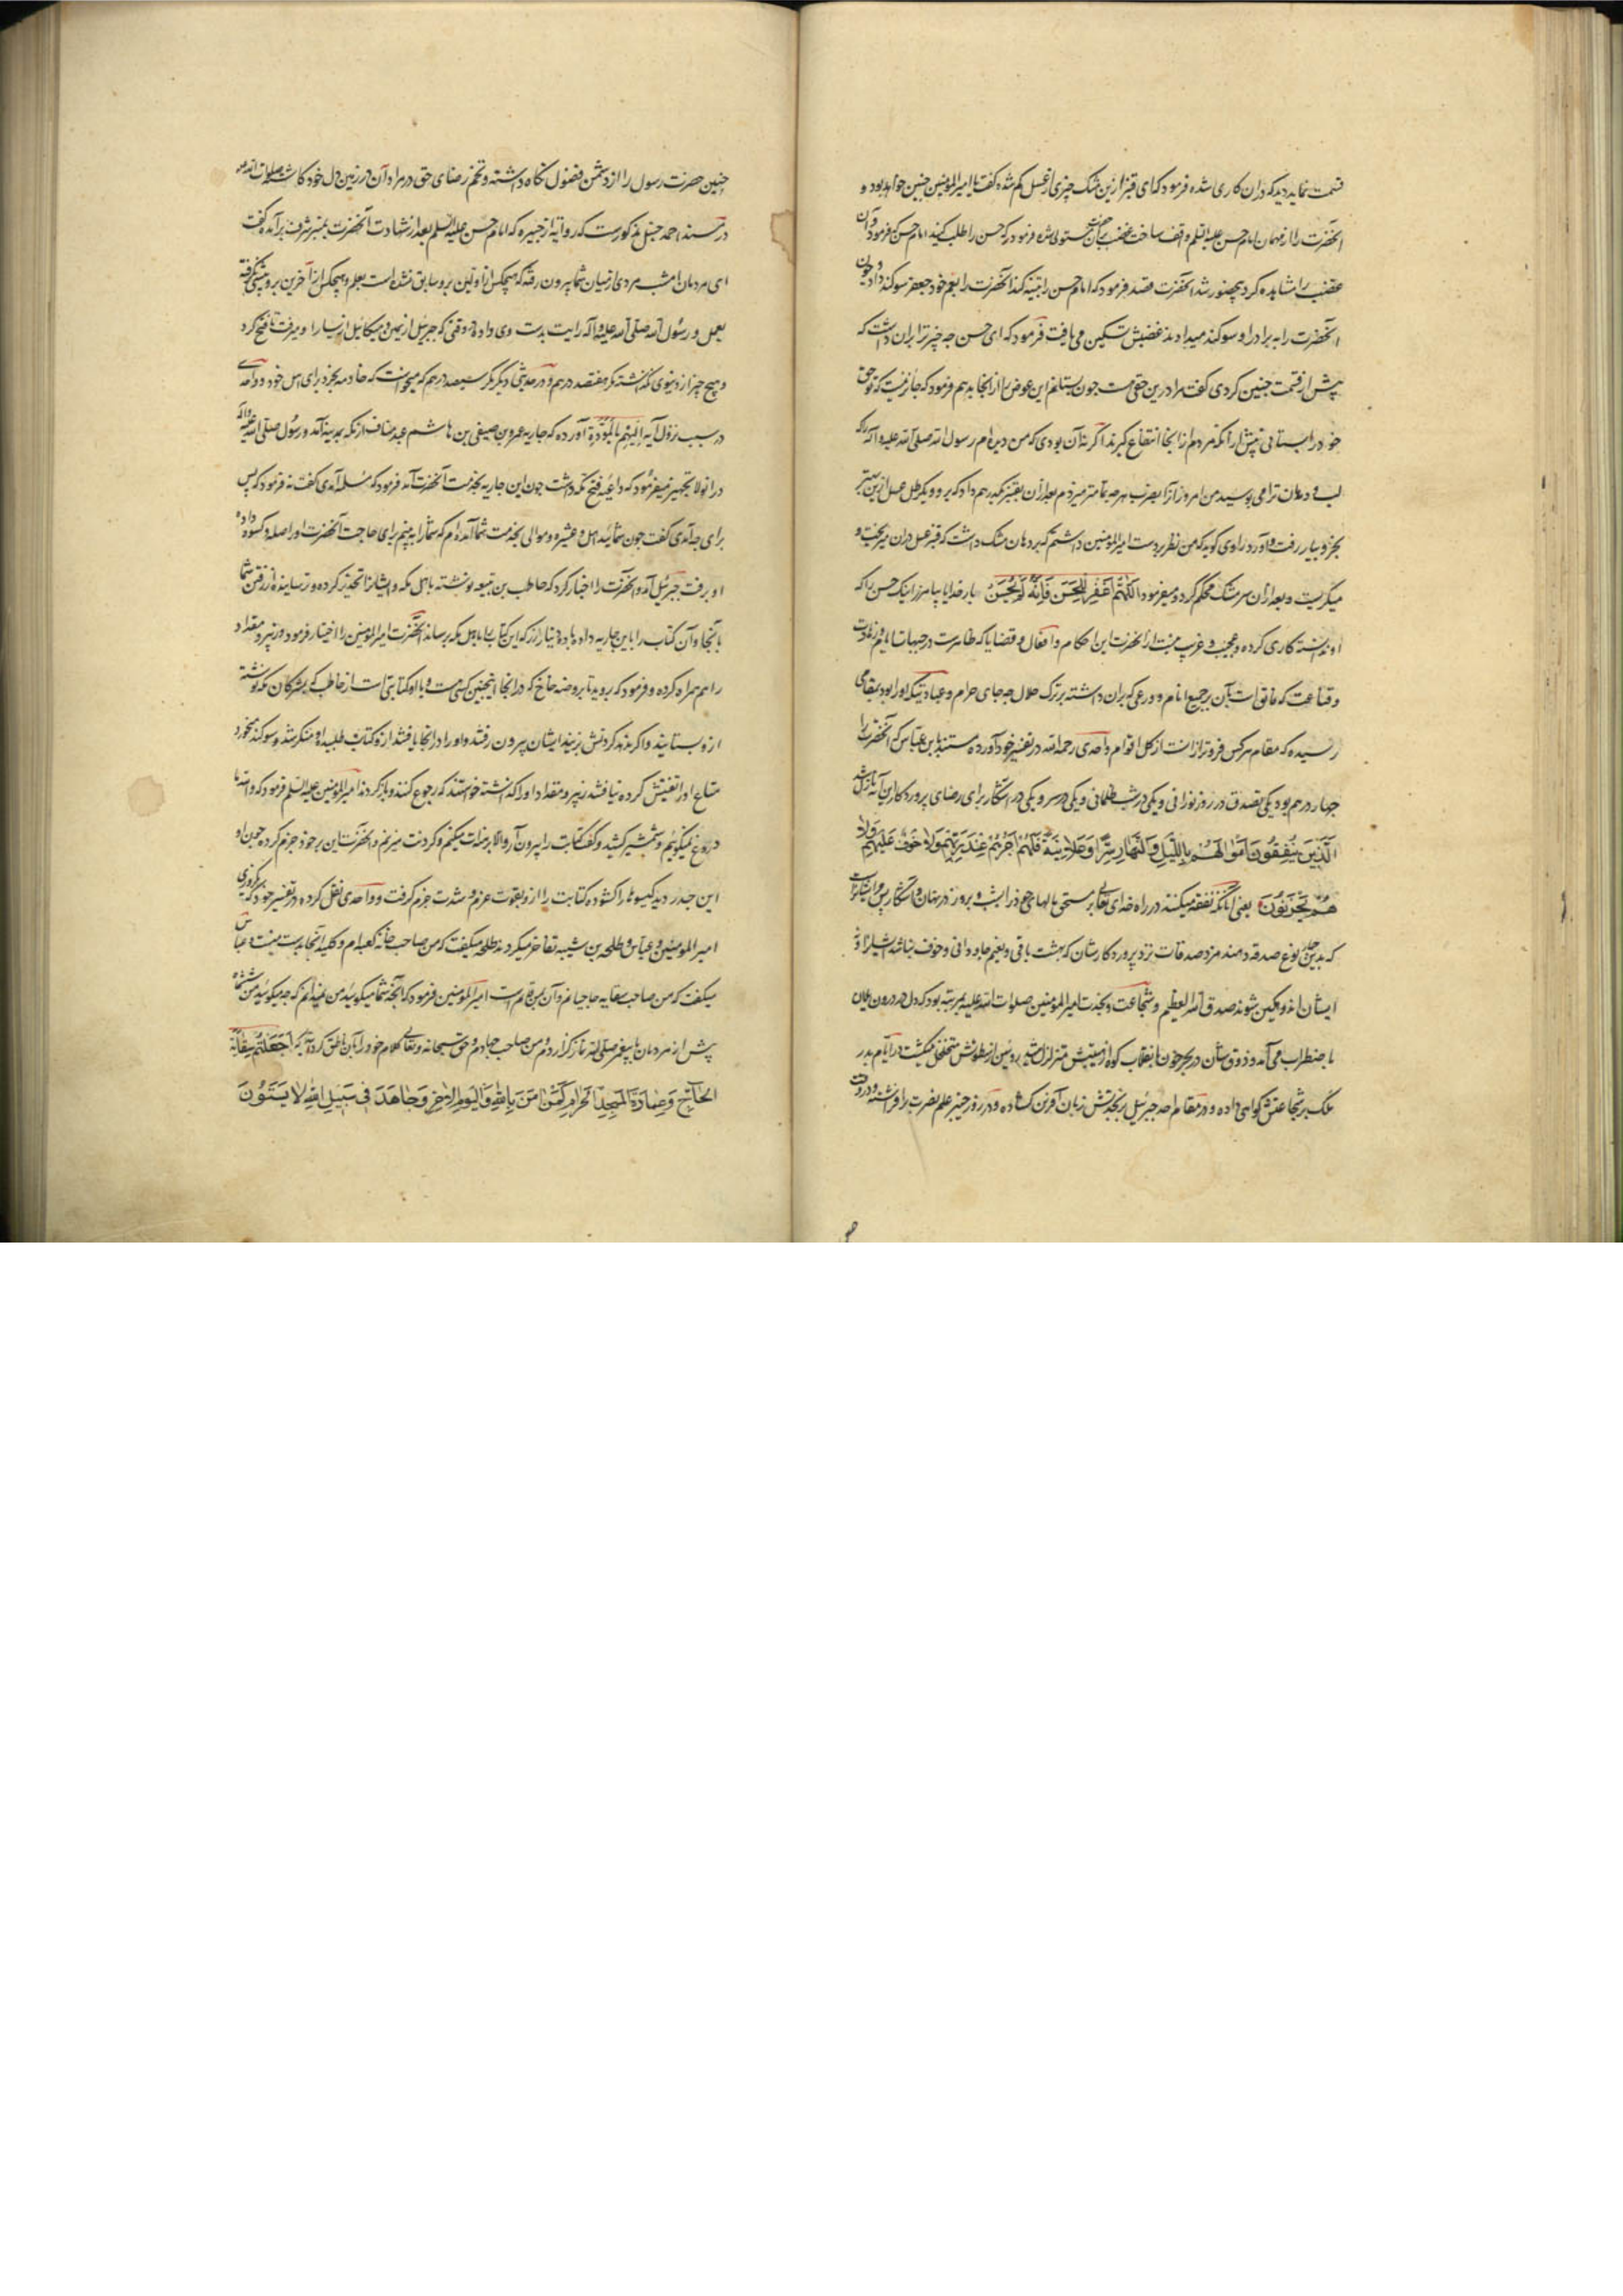 قسمت نماید دید که دران کاری شده فرمود که ای قنبر ازین مشک چیزی از عسل کم شده گفت یا امیرالمؤمنین چنین خواهد بود و
آنحضرت را از مهمان امام حسن علیه السلم واقف ساخت غضب بر آنحضرت مستولی شده فرمود که حسن را طلب کنید امام حسن فرمود و آن
غضب را مشاهده کرد بحضور شد آنحضرت قصد فرمود که امام حسن را تنبیه کند آنحضرت را بعم خود جعفر سوکند داد و چون
آنحضرت را به برادر او سوکند میدادند غضبش تسکین می یافت فرمود که ای حسن چه چیز ترا بران داشت که
پیش از قسمت چنین کردی گفت مرا درین حقی هست چون بستانم این عوض را از انجا بدهم فرمود که جائز نیست که تو حق
خود را بستانی پیش از آنکه مردم از انجا انتفاع گیرند اگر نه آن بودی که من دیده ام رسول الله صلی الله علیه وآله که
لب و دهان ترا می بوسید من امروز ترا بضرب هر چه تمامتر میزدم بعد ازان بقنبر یکدرهم داد که برو و یکرطل عسل ازین بهتر
بخر و بیار رفت و آورد راوی گوید که من نظر بر دست امیرالمؤمنین داشتم که بر دهان مشک داشت که قنبر عسل دران میریخت و
میگریست و بعد ازان سر مشک محکم کرد و میفرمود اللهم اغفر للحسن فانه لم یحسن بار خدایا بیامرز اینک حسن را که
او ندانسته کاری کرده و عجیب و غریب نیست از آنحضرت این احکام و افعال و قضایا که طهارت در جهات
و قناعت که فائق است بآن بر جمیع انام و ورعی که بران داشته بر ترک حلال چه جای حرام و عبادتیکه او را بود بمقامی
رسیده که مقام هر کس فروتر ازانست از کل اقوام واحدی رحمه الله در تفسیر خود آورده مسند بابن عباس که آنحضرت را
چهار درهم بود یکی تصدق در روز نورانی و یکی در شب ظلمانی و یکی در سر و یکی در آشکار برای رضای پروردکار این آیه نازل شد
الَّذِینَ یُنْفِقُونَ اَمْوَالَهُمْ بِاللَّیْلِ وَالنَّهَارِ سِرًّا وَعَلَانِیَةً فَلَهُمْ اَجْرُهُمْ عِنْدَ رَبِّهِمْ وَلَا خَوْفٌ عَلَیْهِمْ وَلَا
هُمْ یَحْزَنُونَ یعنی آنانکه نفقه میکنند در راه خدای تعالی بر مستحق مالهاء خود را بشب و بروز در نهان و آشکار پس مر ایشانراست
که بدین چهار نوع صدقه دهند مزد صدقات نزد پروردکارشان که بهشت باقی و نعیم جاودانی و خوف نباشد ایشانرا و نه
ایشان اندوهکین شوند صدق الله العظیم و شجاعت و نجدت امیرالمؤمنین صلوات الله علیه بمرتبه بود که دل در درون
باضطراب می آمد و خون بانقلاب کوه از هیبتش متزلزل در ایام بدر
ملک بر شجاعتش گواهی داده و در مقام احد جبرئیل بنجدتش زبان آفرین کشاده و در روز خیبر علم نصرت را افراشته و در وقت
چنین حضرت رسول را از دشمن فضول نکاه داشته و تخم رضای حق در مراد آن در زمین دل خود کاشته
در مسند احمد حنبل مذکورست که روایة از هبیره که امام حسن علیه السلم بعد از شهادت آنحضرت بمنبر شرف برآمده گفت
ای مردمان امشب مردی از میان شما بیرون رفته که هیچکس از اولین برو سابق نشده است بعلم و هیچکس از آخرین برو پیشی نگرفته
بعمل و رسول الله صلی الله علیه وآله رایت بدست وی داده و وقتی که جبرئیل از یمین و میکائیل از یسار او میرفت تا فتح کرد
و هیچ چیز از دنیوی نگذاشته مگر هفتصد درهم و در حدیثی دیگر مگر سیصد درهم که میخواست که خادمه بخرد برای اهل خود و واحدی
در سبب نزول آیه الیهم بالمودة آورده که جاریه عمرو بن صیفی بن هاشم عبد مناف از مکه بمدینه آمد و رسول صلی الله علیه وآله
در انولا تجهیز میفرمود که داعیه فتح مکه داشت چون این جاریه بخدمت آنحضرت آمد فرمود که مسلمه آمدی گفت نه فرمود که پس
برای چه آمدی گفت چون شمائید اهل و عشیره و موالی بخدمت شما آمده ام که شما را ببینم برای حاجت آنحضرت او را صله و کسوة داد و
او برفت جبرئیل آمد و آنحضرت را اخبار کرد که حاطب بن بلتعه نوشته باهل مکه و ایشانرا تحذیر کرده و ترسانیده از رفتن شما
بآنجا و آن کتاب را باین جاریه داده با ده دینار زر که این کتاب را باهل مکه برساند آنحضرت امیرالمؤمنین را اختیار فرمود و زبیر و مقداد
را هم همراه کرده و فرمود که بروید تا بروضه خاخ که در انجا اینچنین کسی هست و با او کتابتی است از حاطب که بمشرکان مکه نوشته
ازو بستانید و اگر ندهد کردنش بزنید ایشان بیرون رفتند و او را در انجا یافتند ازو کتاب طلبیده او منکر شد و سوکند میخورد
متاع او را تفتیش کرده نیافتند زبیر و مقداد او را گذاشته خواستند که رجوع کنند و باز کردند امیرالمؤمنین علیه السلم فرمود که والله ما
دروغ نمیگوئیم و شمشیر کشید و گفت کتابت را بیرون آر والا برهنه ات میکنم و کردنت میزنم و آنحضرت این بر خود جزم کرده چون او
این جد را دید گیسو را کشوده کتابت را ازو بقوت عزم و شدت جزم گرفت و واحدی نقل کرده در تفسیر خود که روزی
امیرالمؤمنین و عباس و طلحه بن شیبه تفاخر میکردند طلحه میگفت که من صاحب خانه کعبه ام و کلید آنجا بدست منست و عباس
میگفت که من صاحب سقایه حاجیانم و آن بمن قایم است امیرالمؤمنین فرمود که آنچه شما میکوئید من نمیدانم که چه میکوئید من ششماه
پیش از مردمان با پیغمبر صلی الله نماز گزاردم و من صاحب جهادم و حق سبحانه و تعالی کلام خود را بآن ناطق کرده که اَجَعَلْتُمْ سِقَایَةَ
الْحَاجِّ وَعِمَارَةَ الْمَسْجِدِ الْحَرَامِ کَمَنْ اٰمَنَ بِاللّٰهِ وَالْیَوْمِ الْاٰخِرِ وَجَاهَدَ فِی سَبِیلِ اللّٰهِ لَا یَسْتَوُونَ